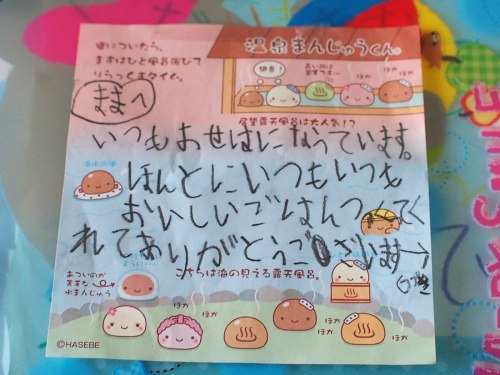 宿についたら、
まずはひと風呂浴びて
りらっくすタイム。
温泉まんじゅうくん。
ほか
ほか
ままへ
展望露天風呂は大人気!?
いつもおせはになっています。
ほんとにいつもいつも
おいしいごはんつくてく
れてありがとうございます→
あついのが
苦手な
水まんじゅう
こちらは海の見える露天風呂。
ほか
ほか
ほか
ほか
©HASEBE